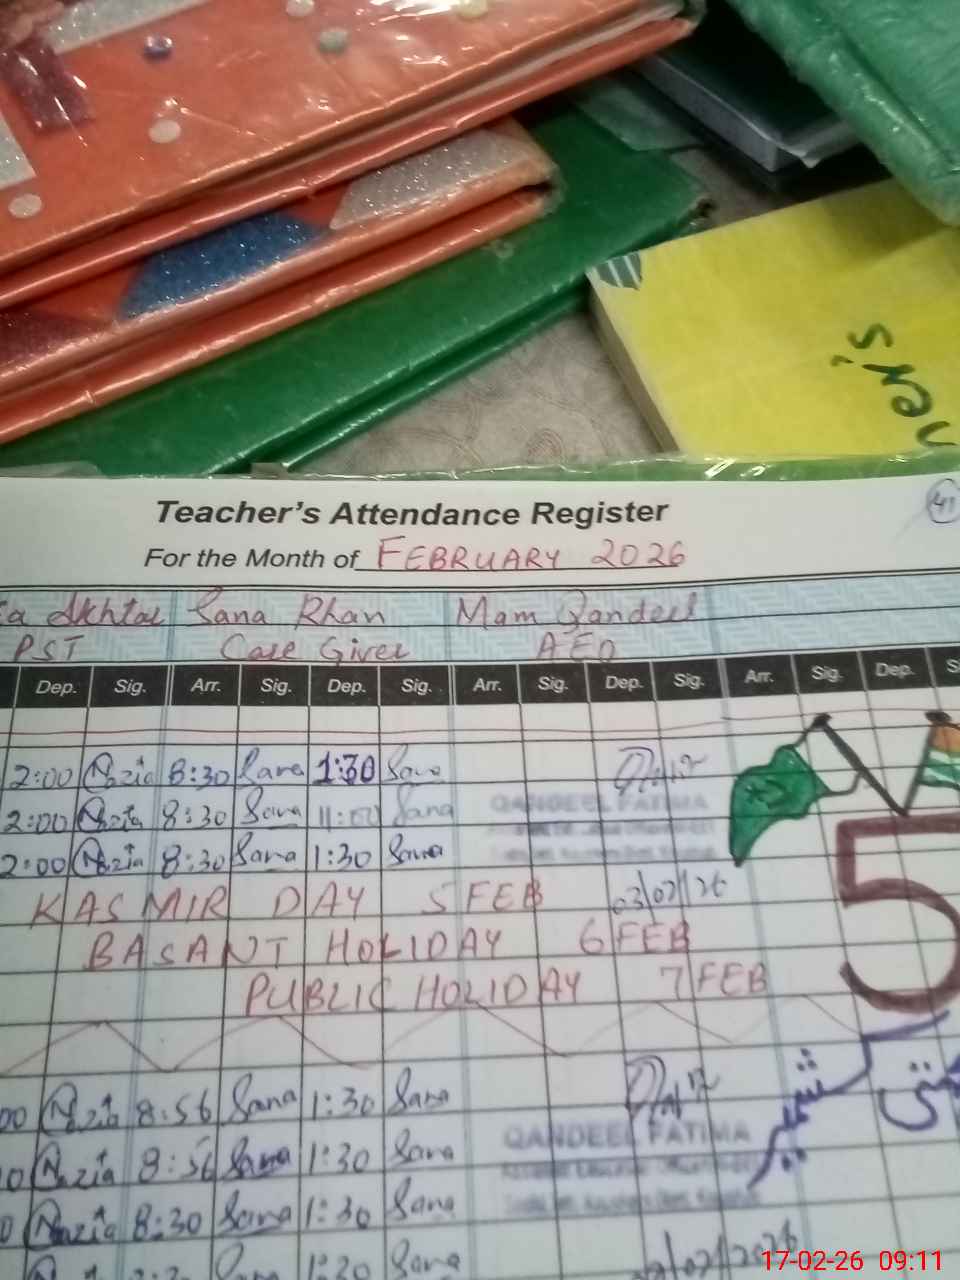 Teacher's Attendance Register
41
For the Month of FEBRUARY 2026
Akhtar Sana Khan Mam Qandeel
PST Care Giver AEO
Dep. Sig. Arr. Sig. Dep. Sig. Arr. Sig. Dep. Sig. Arr. Sig. Dep.
2:00 Nazia 8:30 Sana 1:30 Sana
2:00 Nazia 8:30 Sana 11:00 Sana QANDEEL FATIMA
2:00 Nazia 8:30 Sana 1:30 Sana
KASMIR DAY 5 FEB 03/02/26
BASANT HOLIDAY 6 FEB
PUBLIC HOLIDAY 7 FEB
5
00 Nazia 8:56 Sana 1:30 Sana
QANDEEL FATIMA
0 Nazia 8:56 Sana 1:30 Sana
0 Nazia 8:30 Sana 1:30 Sana
1:30 Sana
17-02-26 09:11